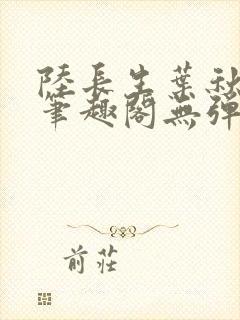 陸長生葉秋
筆趣閣無彈
前莊